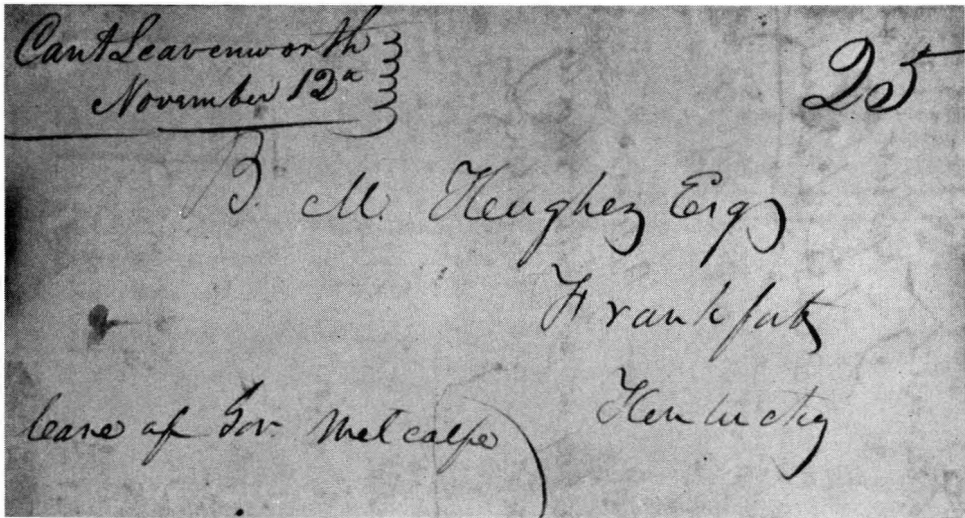 Cant Leavenworth
November 12th
25
B. M. Hughes Esqr
Frankfort
Kentucky
Care of Gov. Metcalfe